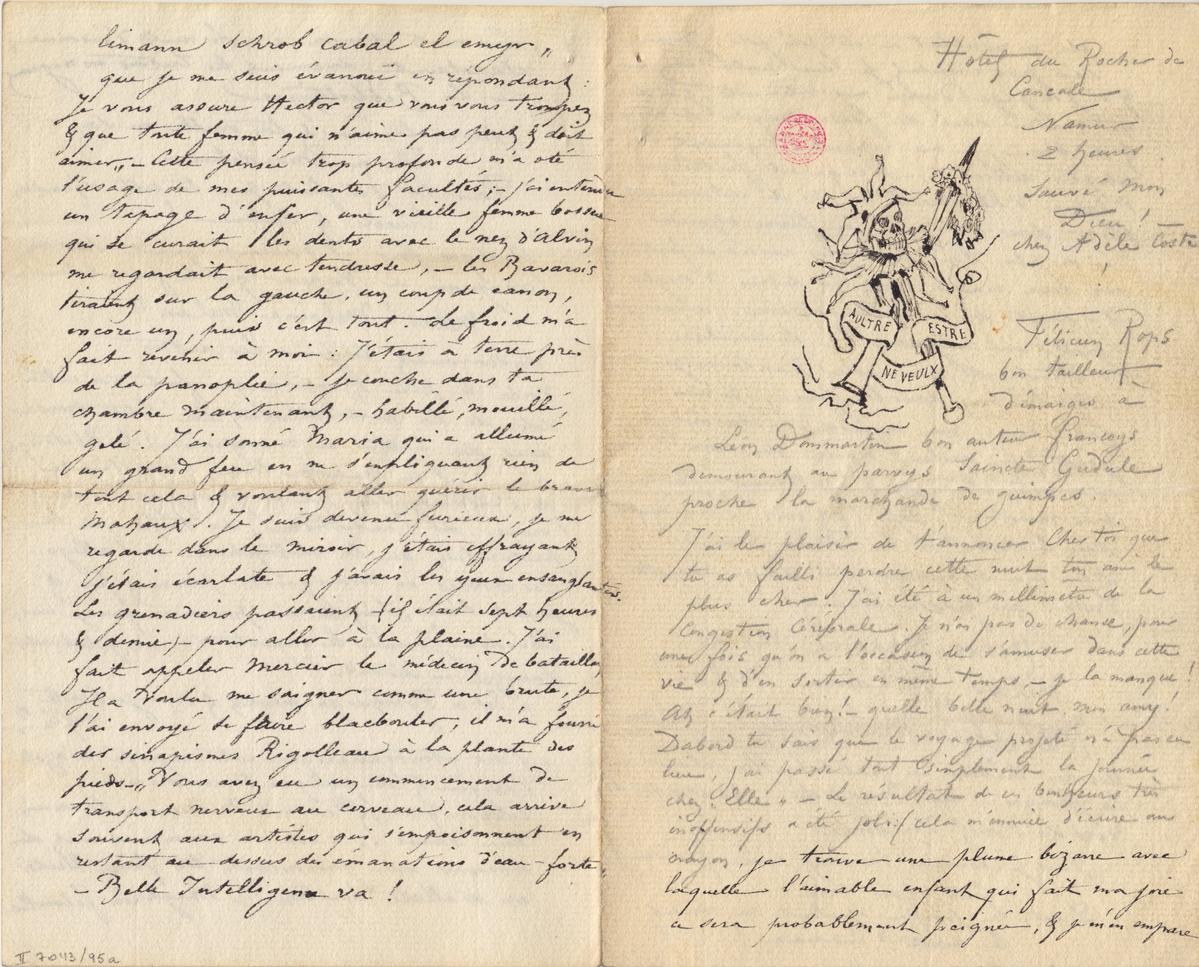 Hôtel du Rocher de
Cancale
Namur
2 heures.
Sauvé mon
Dieu! –
chez Adèle Coste
!
AULTRE
ESTRE
NE VEULX
Félicien Rops
bon tailleur
démarger à
Léon Dommartin bon auteur françoys
demourant au parvys Saincte Gudule
proche la marchande de guimpes.
J'ai le plaisir de t'annoncer Cher toi que
tu as failli perdre cette nuit ton ami le
plus cher. J'ai été à un millimètre de la
Congestion Cérébrale. Je n'ai pas de chance, pour
une fois qu'on a l'occasion de s'amuser dans cette
vie & d'en sortir en même temps, – je la manque!
Ah c'était bon! – quelle belle nuit, mon ami!
Dabord tu sais que le voyage projeté n'a pas eu
lieu, j'ai passé tout simplement la journée
chez "Elle" – Le résultat de ces bonheurs très
inoffensifs a été joli: (cela m'ennuie d'écrire au
crayon, je trouve une plume bizarre avec
laquelle l'aimable enfant qui fait ma joie
a sera probablement peignée, & je m'en empare
limann schrob cabal el emeyr"
que je me suis évanoui en répondant:
Je vous assure Hector que vous vous trompez
& que toute femme qui n'aime pas peut & doit
aimer," – Cette pensée trop profonde m'a oté
l'usage de mes puissantes facultés; – j'ai entendu
un tapage d'enfer, une vieille femme bossue
qui se curait les dents avec le nez d'Alvin
me regardait avec tendresse, – les Bavarois
tiraient sur la gauche, un coup de canon,
encore un, puis c'est tout. Le froid m'a
fait revenir à moi: J'étais à terre près
de la panoplie, – je couche dans ta
chambre maintenant, – habillé, mouillé,
gelé. J'ai sonné Maria qui a allumé
un grand feu en ne s'expliquant rien de
tout cela & voulant aller quérir le brave
Je suis devenu furieux, je me
regarde dans le miroir, j'étais effrayant
j'étais écarlate & j'avais les yeux ensanglantés.
Les grenadiers passaient (il était sept heures
& demie) – pour aller à la plaine. J'ai
fait appeler Mercier le médecin de bataillon
Il a voulu me saigner comme une brute, je
l'ai envoyé se faire blackbouler, il m'a fourré
des sinapismes Rigolleau à la plante des
pieds. – "Vous avez eu un commencement de
transport nerveux au cerveau, cela arrive
souvent aux artistes qui s'empoisonnent en
restant au dessus des émanations d'eau-forte"
– Belle Intelligence va!
II 7043/95a